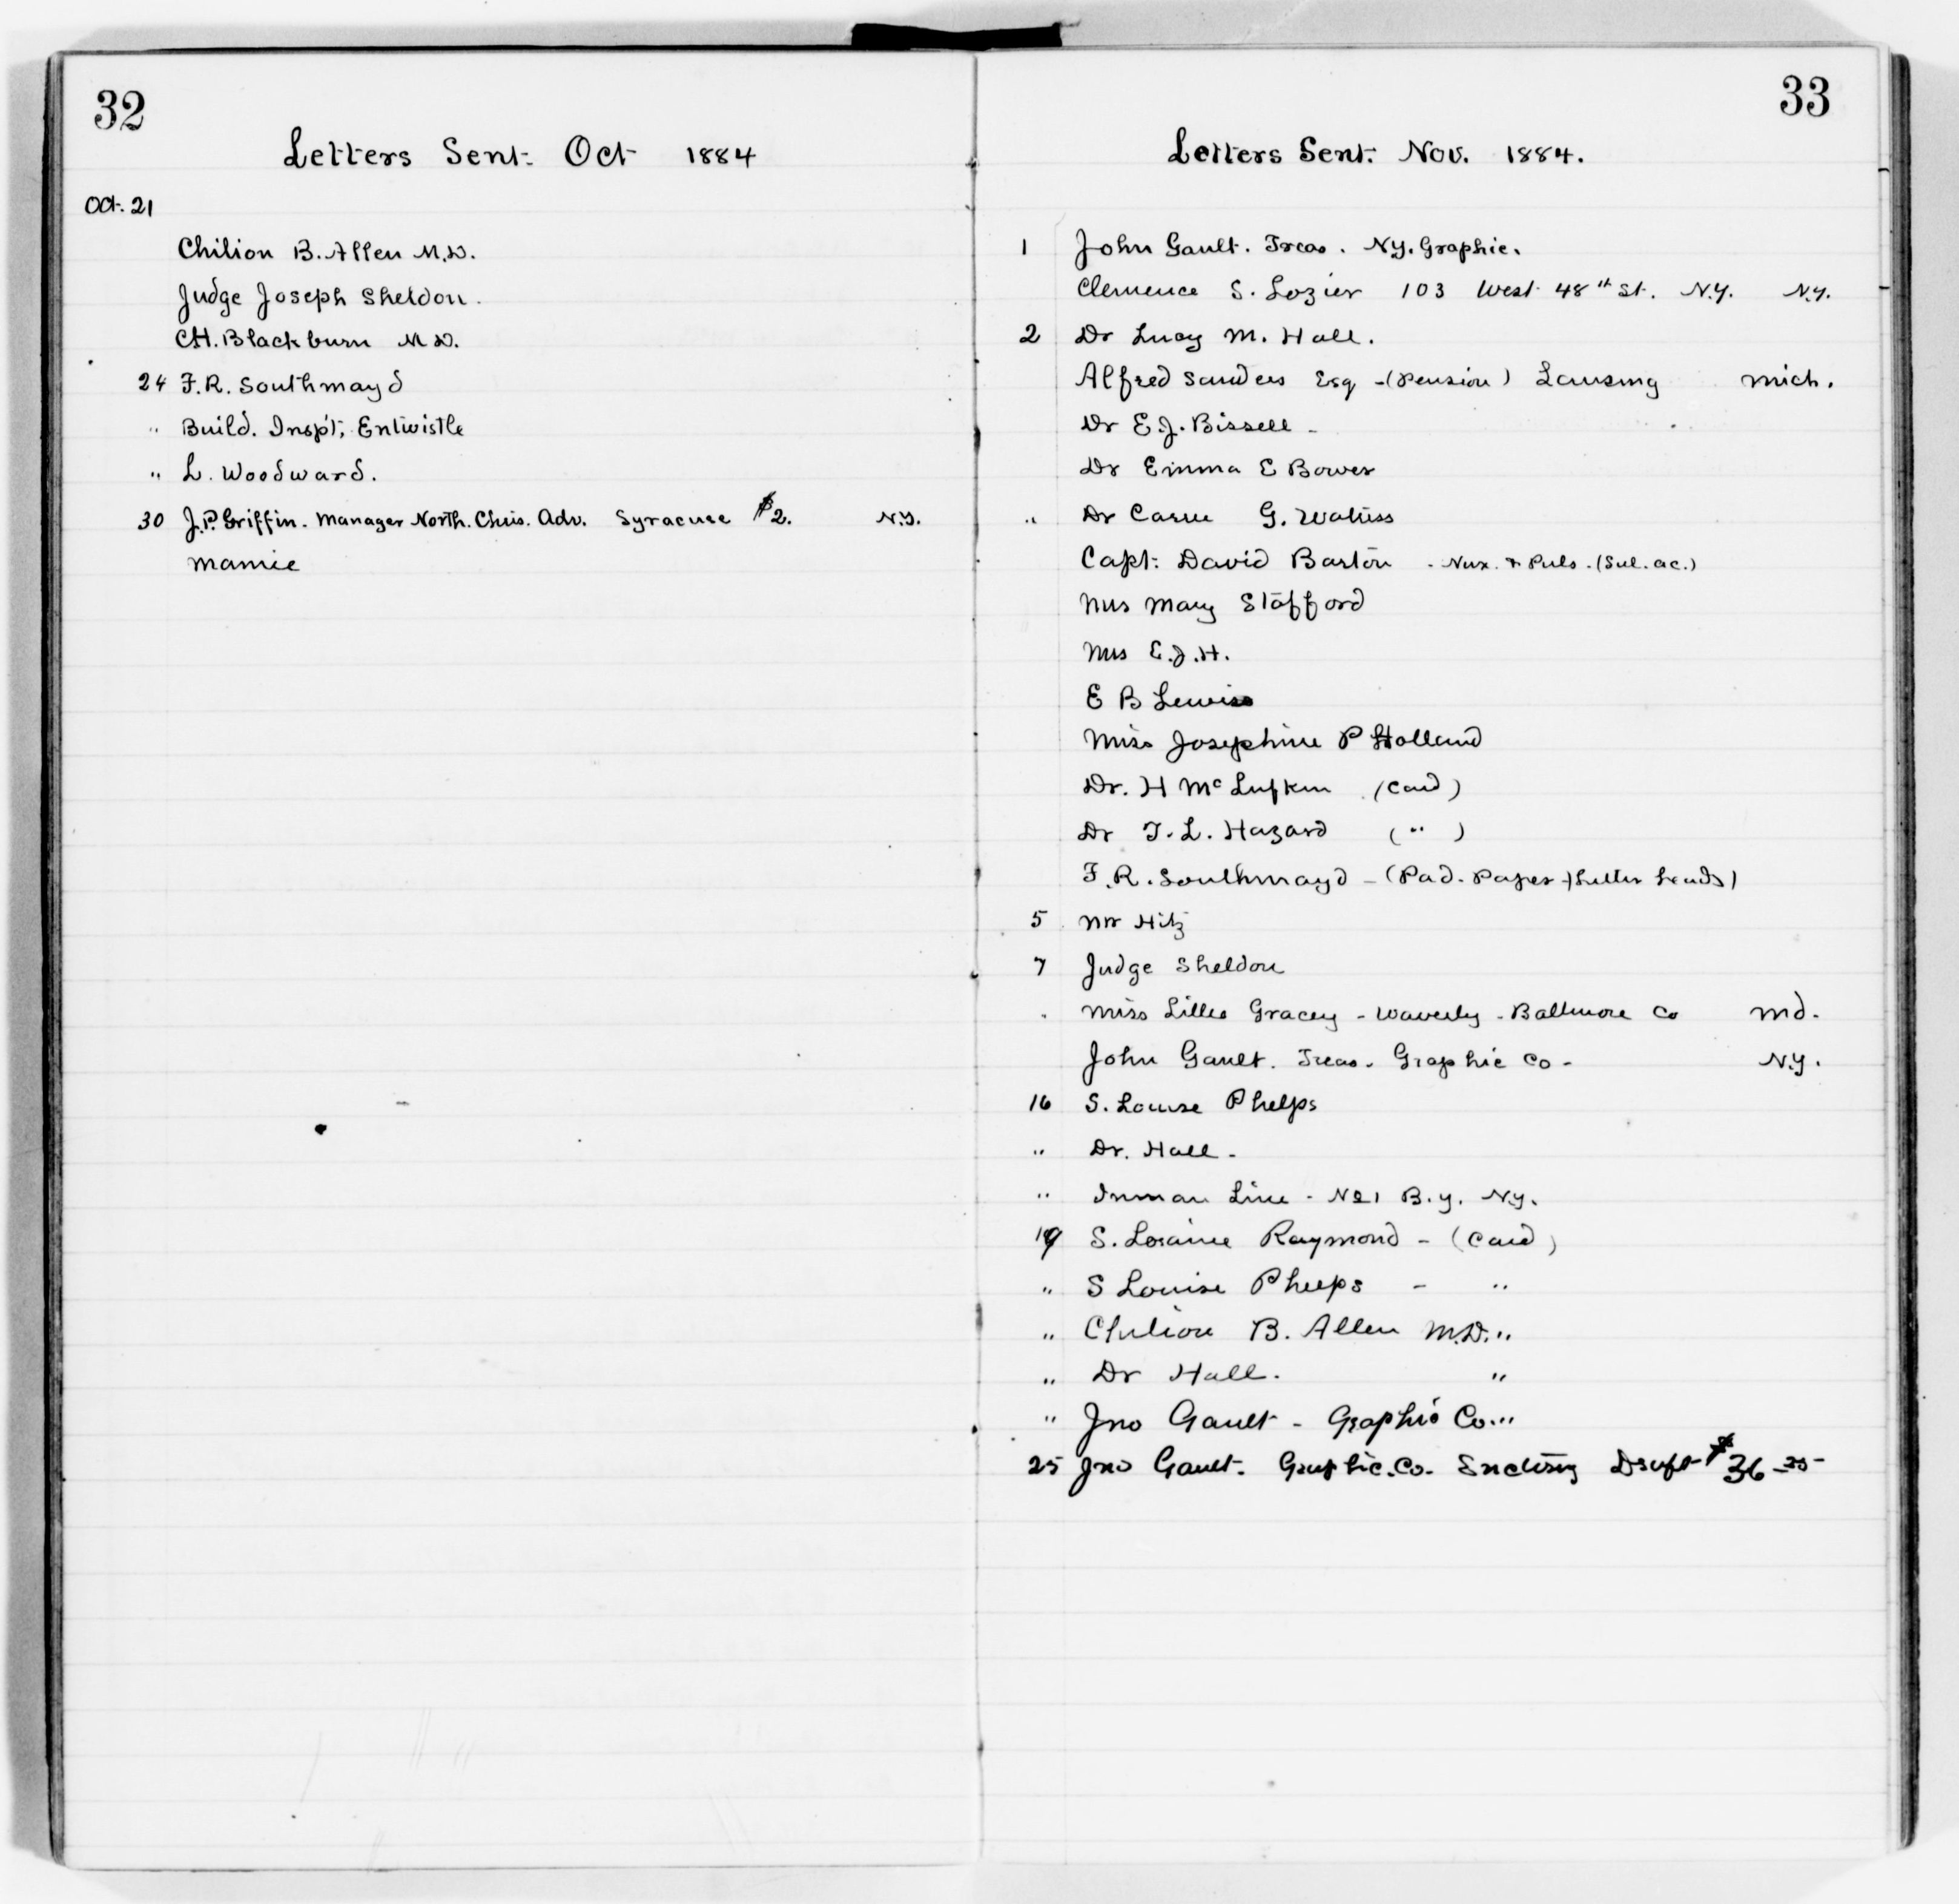 32
Letters Sent. Oct 1884
Oct. 21
Chilion B. Allen M.D.
Judge Joseph Sheldon.
CH. Blackburn M D.
24 F.R. Southmayd
" Build. Insp't, Entwistle
" L. Woodward.
30 J.P. Griffin. Manager North. Chris. Adv. Syracuse $2. N.Y.
Mamie
33
Letters Sent. Nov. 1884.
1 John Gault. Treas. N.Y. Graphic.
Clemence S. Lozier 103 West 48th St. N.Y. N.Y.
2 Dr Lucy M. Hall.
Alfred Sanders Esq - (Pension) Lansing Mich.
Dr E.J. Bissell -
Dr Emma E Bower
" Dr Carrie G.
Capt. David Barton - Nux. & Puls. (Sul. ac.)
Mrs Mary Stafford
Mrs E.J.H.
E B Lewis
Miss Josephine P Holland
Dr. H Mc Lufkin (Card)
Dr T. L. Hazard ( " )
F.R. Southmayd - (Pad. Paper + Letter heads)
5 Mr Hitz
7 Judge Sheldon
" Miss Gracey - Waverly - Baltimore Co Md.
John Gault. Treas. Graphic Co - N.Y.
16 S. Louise Phelps
" Dr. Hall -
" Inman Line - No 1 B.y. N.y.
19 S. Loraine Raymond - (Card)
" S Louise Phelps - "
" Chilion B. Allen M.D. "
" Dr Hall. "
" Jno Gault - Graphic Co. "
25 Jno Gault. Graphic. Co. Enclosing Draft $36